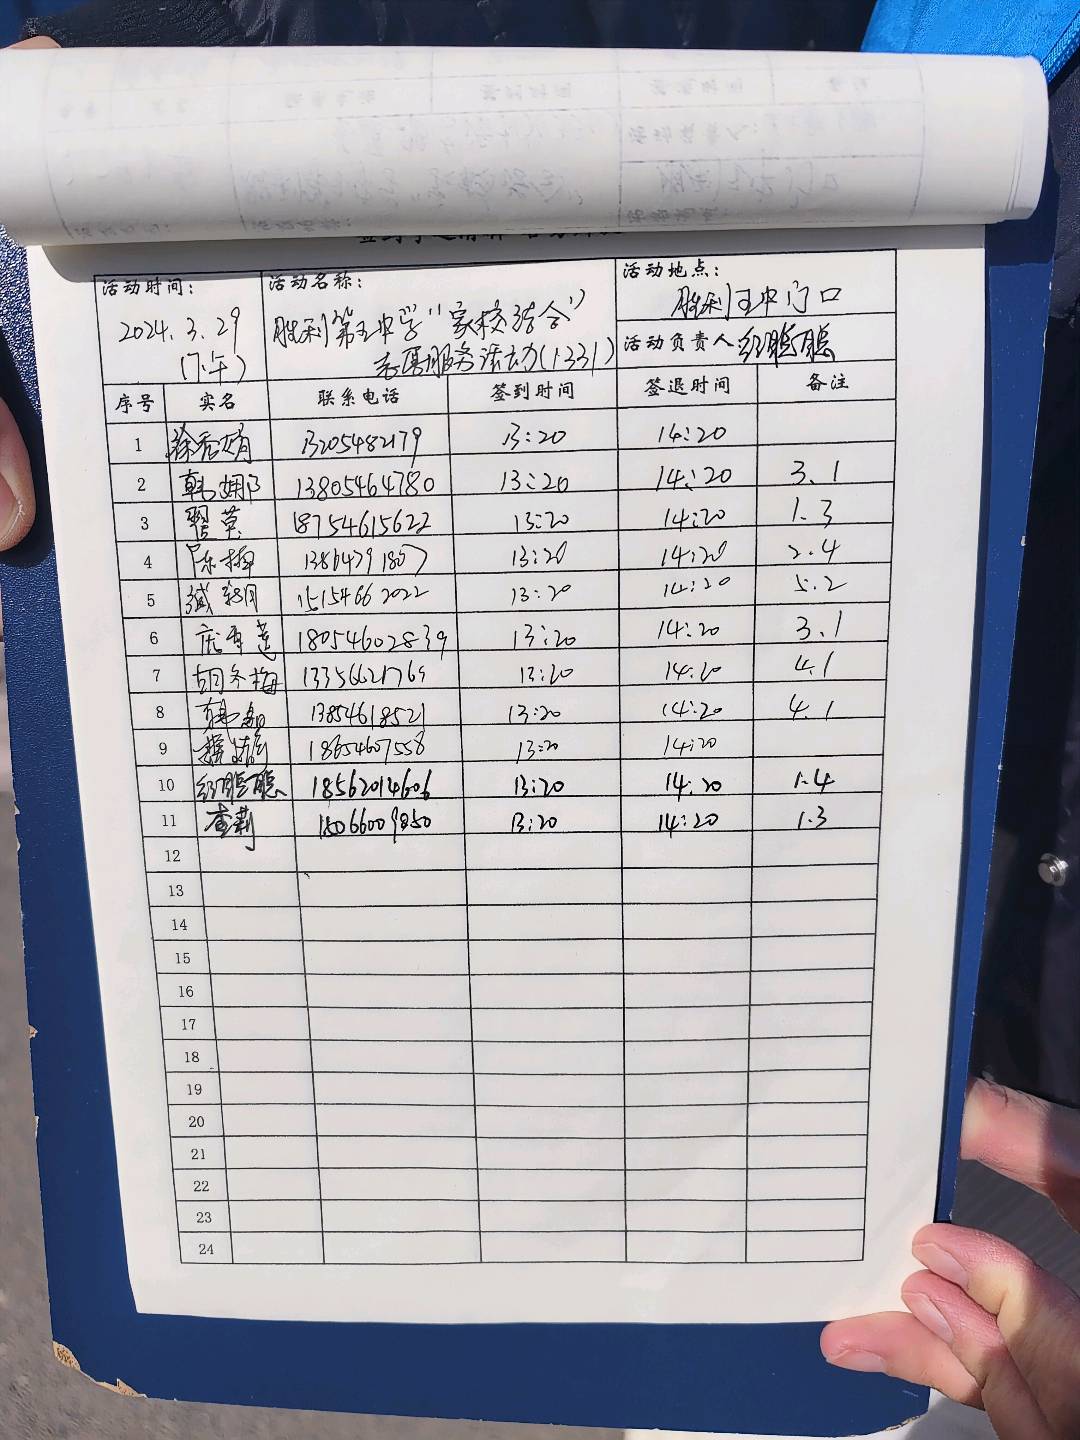 活动时间：
2024.3.29
（下午）
活动名称：
胜利第五中学“家校结合”
志愿服务活动（1331）
活动地点：
胜利五中门口
活动负责人
序号 实名 联系电话 签到时间 签退时间 备注
1 徐秀娟 13205482179 13:20 14:20
2 韩娜 13805464780 13:20 14:20 3.1
3 翟莫 18754615622 13:20 14:20 1.3
4 陈梅 13864791807 13:20 14:20 2.4
5 15154662022 13:20 14:20 5.2
6 18054602839 13:20 14:20 3.1
7 胡冬梅 13356621769 13:20 14:20 4.1
8 13854618521 13:20 14:20 4.1
9 18654607558 13:20 14:20
10 18562014606 13:20 14:20 1.4
11 李莉 15066009850 13:20 14:20 1.3
12
13
14
15
16
17
18
19
20
21
22
23
24